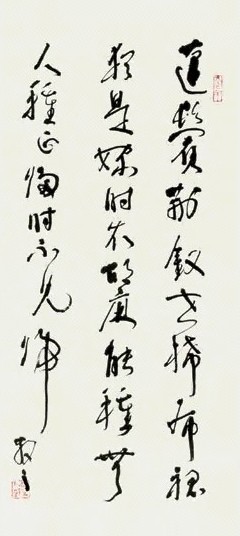 蓬鬢荊釵世稀布裙
猶是嫁時衣胡麻能種無
人種正歸時不見歸
散之